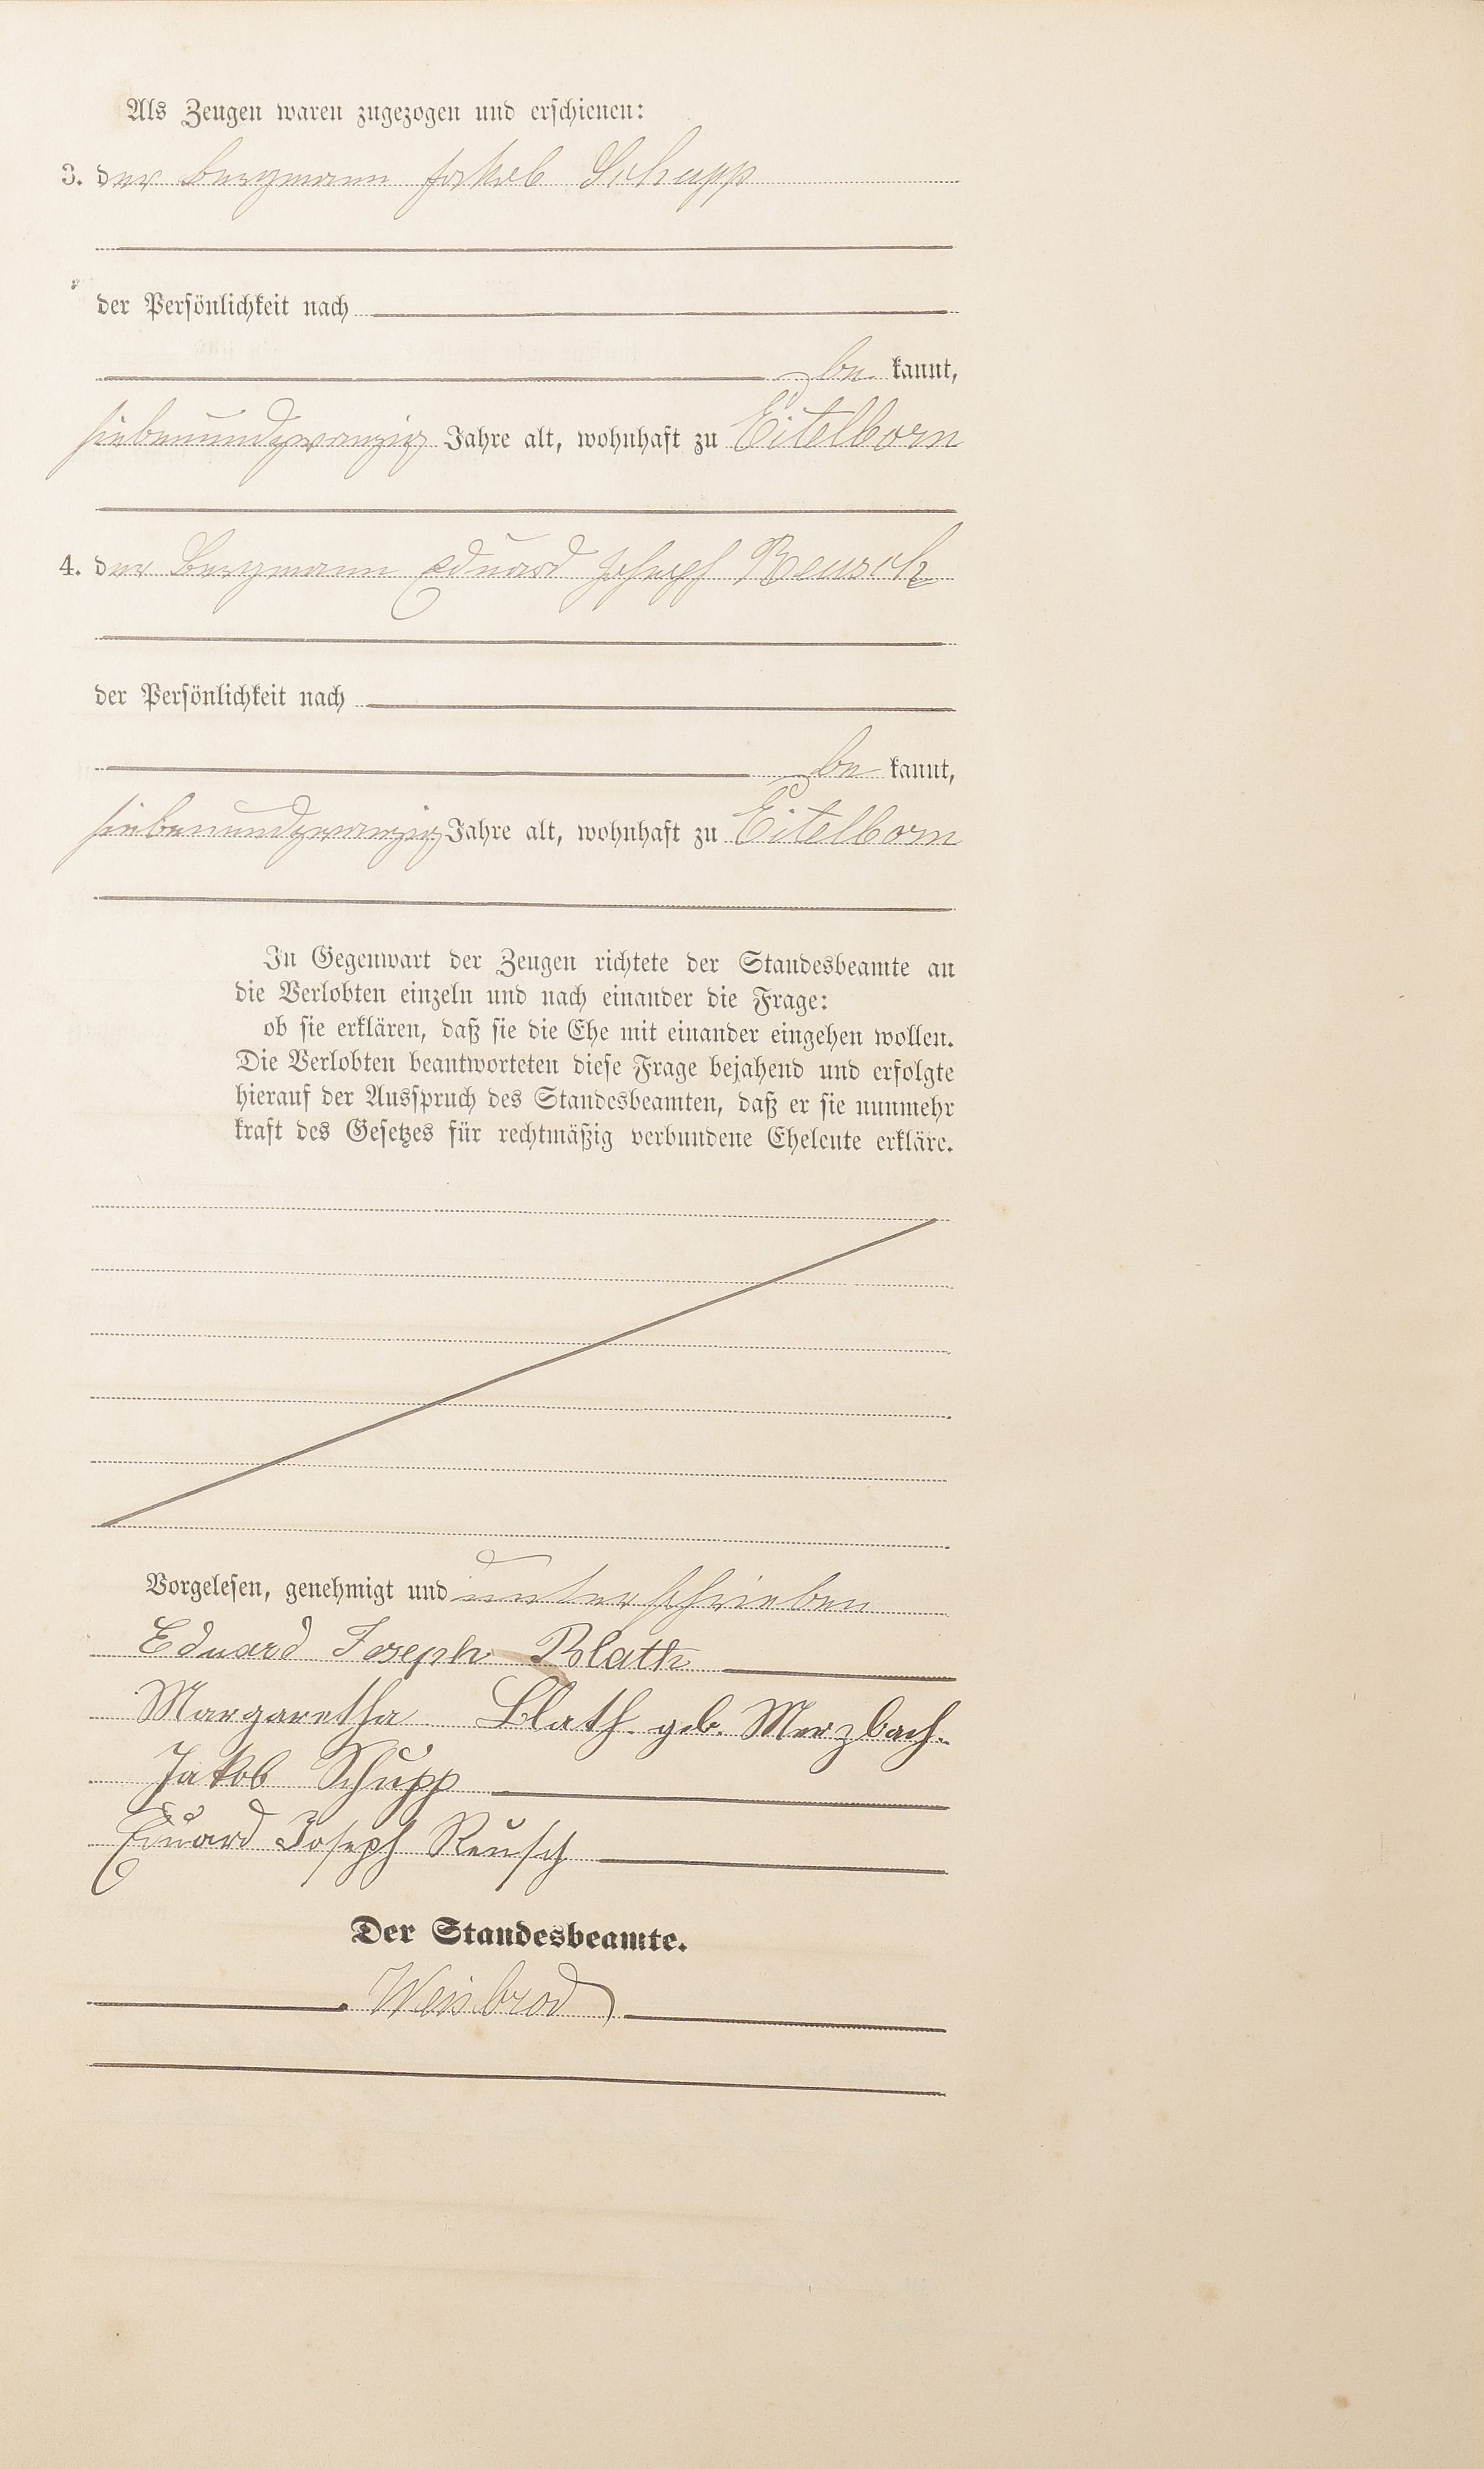 Als Zeugen waren zugezogen und erschienen:
3. der Bergmann Jakob Schupp
der Persönlichkeit nach
be kannt,
siebenundzwanzig Jahre alt, wohnhaft zu Eitelborn
4. der Bergmann Eduard Joseph Reusch
der Persönlichkeit nach
be kannt,
siebenundzwanzig Jahre alt, wohnhaft zu Eitelborn
In Gegenwart der Zeugen richtete der Standesbeamte an
die Verlobten einzeln und nach einander die Frage:
ob sie erklären, daß sie die Ehe mit einander eingehen wollen.
Die Verlobten beantworteten diese Frage bejahend und erfolgte
hierauf der Ausspruch des Standesbeamten, daß er sie nunmehr
kraft des Gesetzes für rechtmäßig verbundene Eheleute erkläre.
Vorgelesen, genehmigt und unterschrieben
Eduard Joseph Blath
Margaretha Blath geb. Merzbach.
Jakob Schupp
Eduard Joseph Reusch
Der Standesbeamte.
Weisbrod